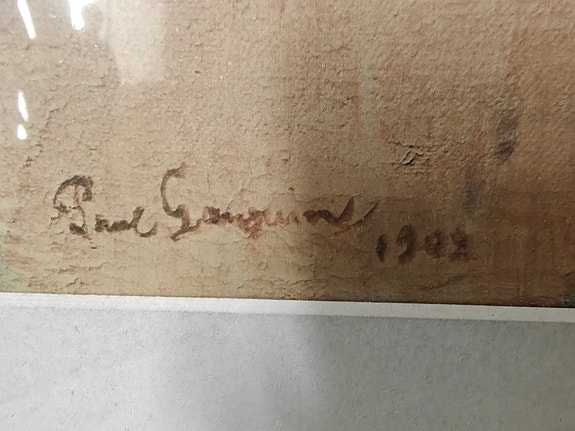 Paul Gauguin 1902